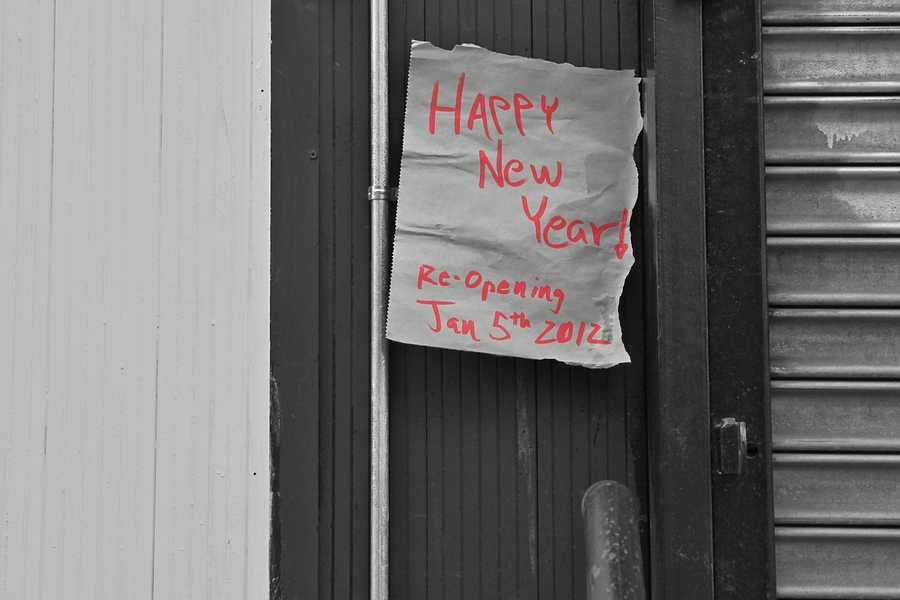 HAPPY
New
Year!
Re-Opening
Jan 5th 2012